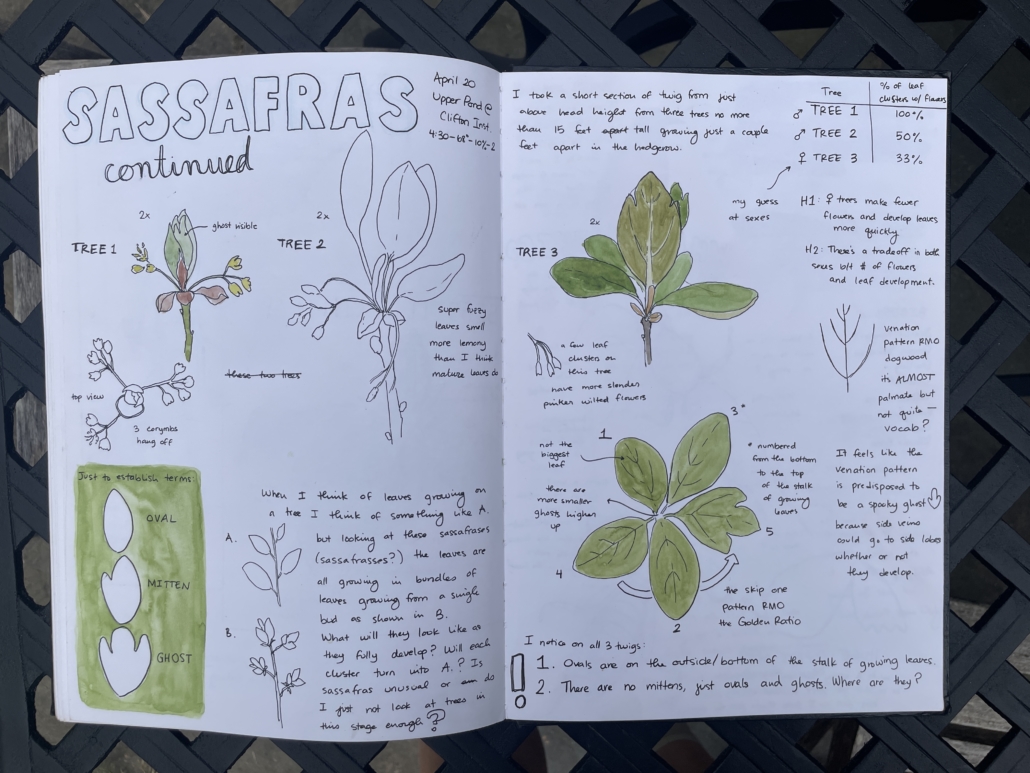 SASSAFRAS
continued
April 20
Upper Pond @
Clifton Inst.
4:30-68°-10%-2
2x
ghost visible
TREE 1
2x
TREE 2
super fuzzy
leaves smell
more lemony
than I think
mature leaves do
these two trees
top view
3 corymbs
hang off
Just to establish terms:
OVAL
MITTEN
GHOST
When I think of leaves growing on
a tree I think of something like A.
but looking at these sassafrases
(sassafrasses?) the leaves are
all growing in bundles of
leaves growing from a single
bud as shown in B.
What will they look like as
they fully develop? Will each
cluster turn into A.? Is
sassafras unusual or do
I just not look at trees in
this stage enough?
A.
B.
I took a short section of twig from just
above head height from three trees no more
than 15 feet apart tall growing just a couple
feet apart in the hedgerow.
Tree
% of leaf
clusters w/ flowers
♂ TREE 1 100%
♂ TREE 2 50%
♀ TREE 3 33%
my guess
at sexes
H1: ♀ trees make fewer
flowers and develop leaves
more quickly
H2: There's a tradeoff in both
sexes b/t # of flowers
and leaf development.
2x
TREE 3
a few leaf
clusters on
this tree
have more slender
pinker wilted flowers
venation
pattern RMO
dogwood
its ALMOST
palmate but
not quite —
vocab?
It feels like the
venation pattern
is predisposed to
be a spooky ghost
because side veins
could go to side lobes
whether or not
they develop.
1
not the
biggest
leaf
3*
* numbered
from the bottom
to the top
of the stalk
of growing
leaves
there are
more smaller
ghosts higher
up
4
5
2
the skip one
pattern RMO
the Golden Ratio
I notice on all 3 twigs:
1. Ovals are on the outside/bottom of the stalk of growing leaves.
2. There are no mittens, just ovals and ghosts. Where are they?